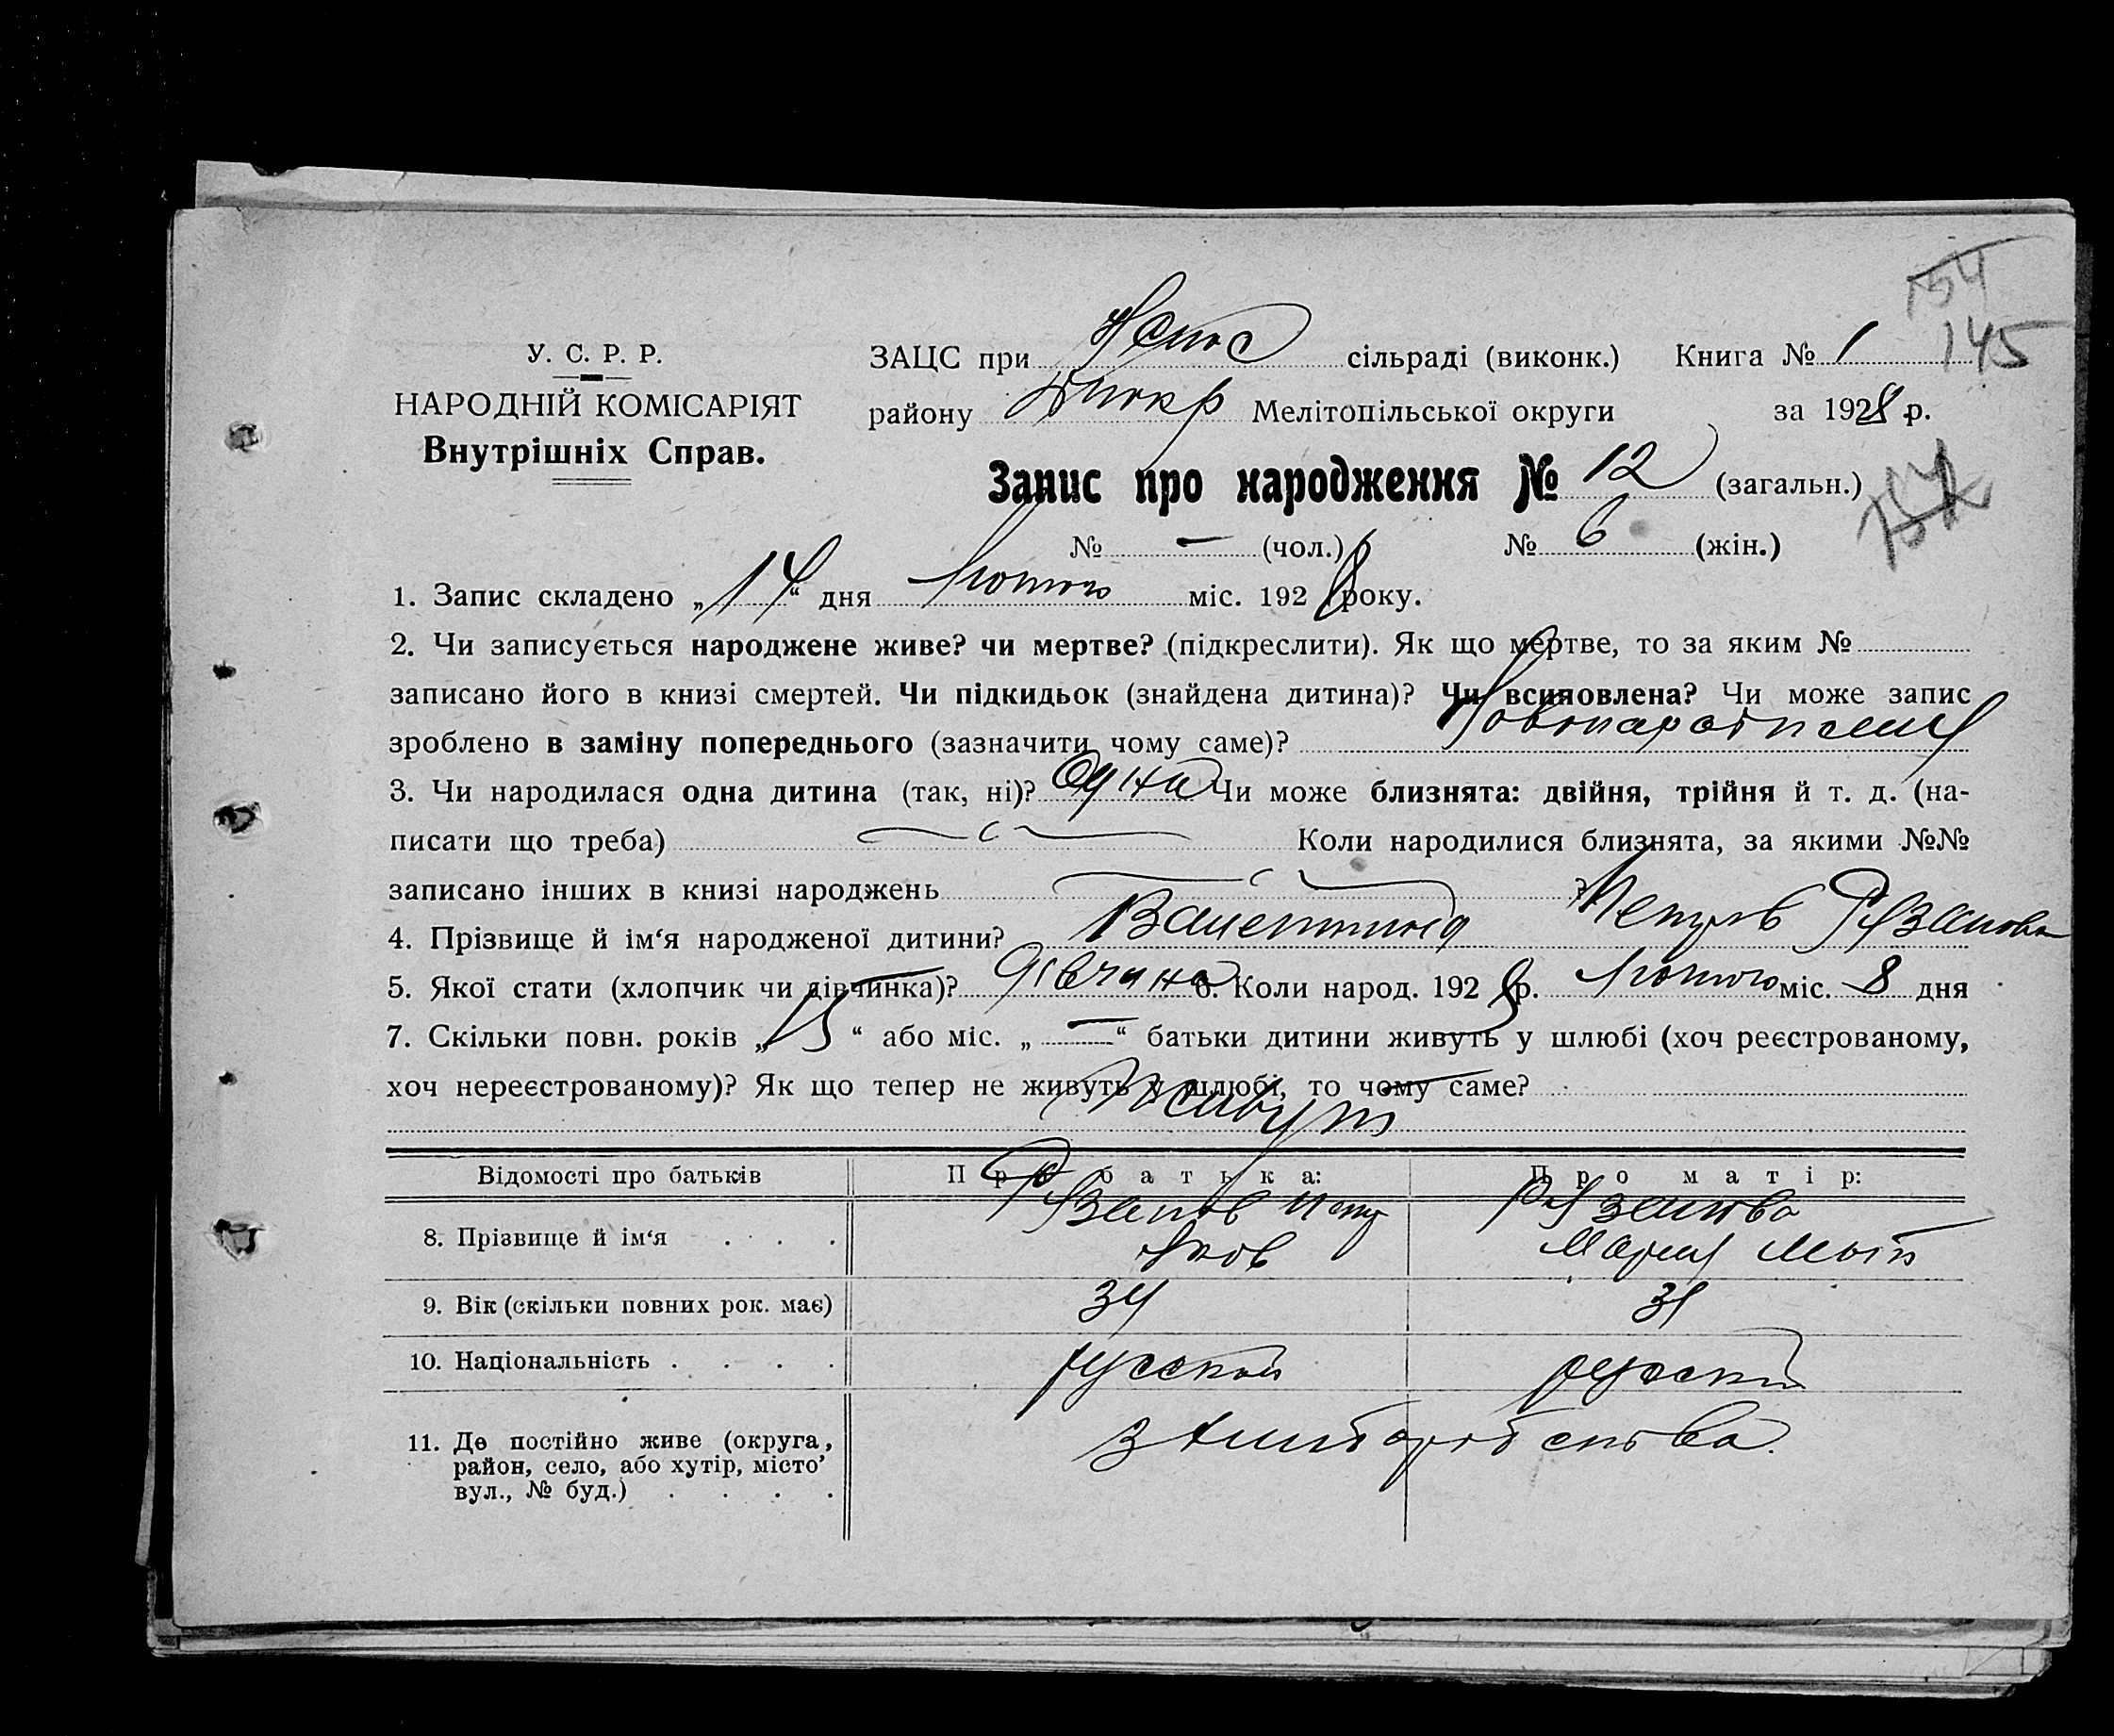 154
145
У. С. Р. Р.
НАРОДНІЙ КОМІСАРІЯТ
Внутрішніх Справ.
ЗАЦС при сільраді (виконк.) Книга № 1
району Мелітопільської округи за 1928 р.
Запис про народження № 12 (загальн.)
№ — (чол.) № 6 (жін.)
1. Запис складено „14“ дня Лютого міс. 1928 року.
2. Чи записується народжене живе? чи мертве? (підкреслити). Як що мертве, то за яким №
записано його в книзі смертей. Чи підкидьок (знайдена дитина)? Чи всиновлена? Чи може запис
зроблено в заміну попереднього (зазначити чому саме)?
3. Чи народилася одна дитина (так, ні)? Одна Чи може близнята: двійня, трійня й т. д. (на-
писати що треба) Коли народилися близнята, за якими №№
записано інших в книзі народжень ?
4. Прізвище й ім‘я народженої дитини? Валентина Рязанова
5. Якої стати (хлопчик чи дівчинка)? Дівчина 6. Коли народ. 1928 р. Лютого міс. 8 дня
7. Скільки повн. років „15“ або міс. „—“ батьки дитини живуть у шлюбі (хоч реєстрованому,
хоч нереєстрованому)? Як що тепер не живуть у шлюбі, то чому саме?
Живуть
Відомості про батьків Про батька: Про матір:
8. Прізвище й ім‘я Рязанов Петр Яков Рязанова Мария
9. Вік (скільки повних рок. має) 34 31
10. Національність русский русский
11. Де постійно живе (округа,
район, село, або хутір, місто’
вул., № буд.)